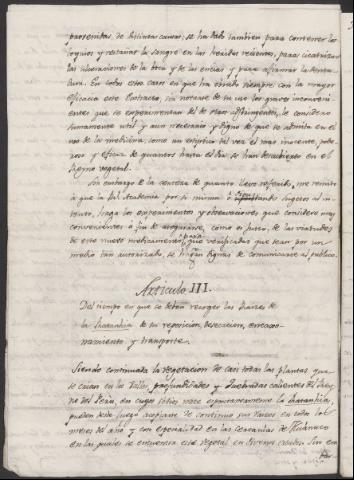 procedidas de distintas causas; se ha dado tambien para contener los
y restañar la sangre en las heridas recientes, para cicatrizar
las ulceraciones de la boca y de las encias y para afirmar la denta
dura. En todos estos casos en que ha obrado siempre con la mayor
eficacia este Extracto, sin notarse de su uso los graves inconveni
entes que se experimentan del de otros astringentes, le considero
sumamente util y aun necesario y digno de que se admita en el
uso de la medicina, como un estiptico tal vez el mas inocente, pode
roso y eficaz de quantos hasta el dia se han descubierto en el
Reyno vegetal.
Sin embargo de la certeza de quanto llevo referido, me remito
à que la Rl. Academia por si misma ò sugetos al in
tento, haga los experimentos y observaciones que considere muy
convenientes à fin de asegurarse, como es justo, de las virtudes
de este nuevo medicamento, para que verificadas que sean por un
medio tan autorizado, se hagan dignas de comunicarse al publico.
Articulo III.
Del tiempo en que se deben recoger las Raices de
la Ratanhia de su reposicion, desecacion, encaxo-
namiento y transporte.
Siendo continuada la vegetacion de casi todas las plantas que
se crian en los Valles, profundidades y Quebradas calientes del Rey-
no del Perù, en cuyos sitios nace espontaneamente la Ratanhia,
pueden desde luego acopiarse de continuo sus Raices en todos los
meses del año y con especialidad en las cercanias de Huánuco
en las quales se encuentra este vegetal en diversos Cerros. Sin em